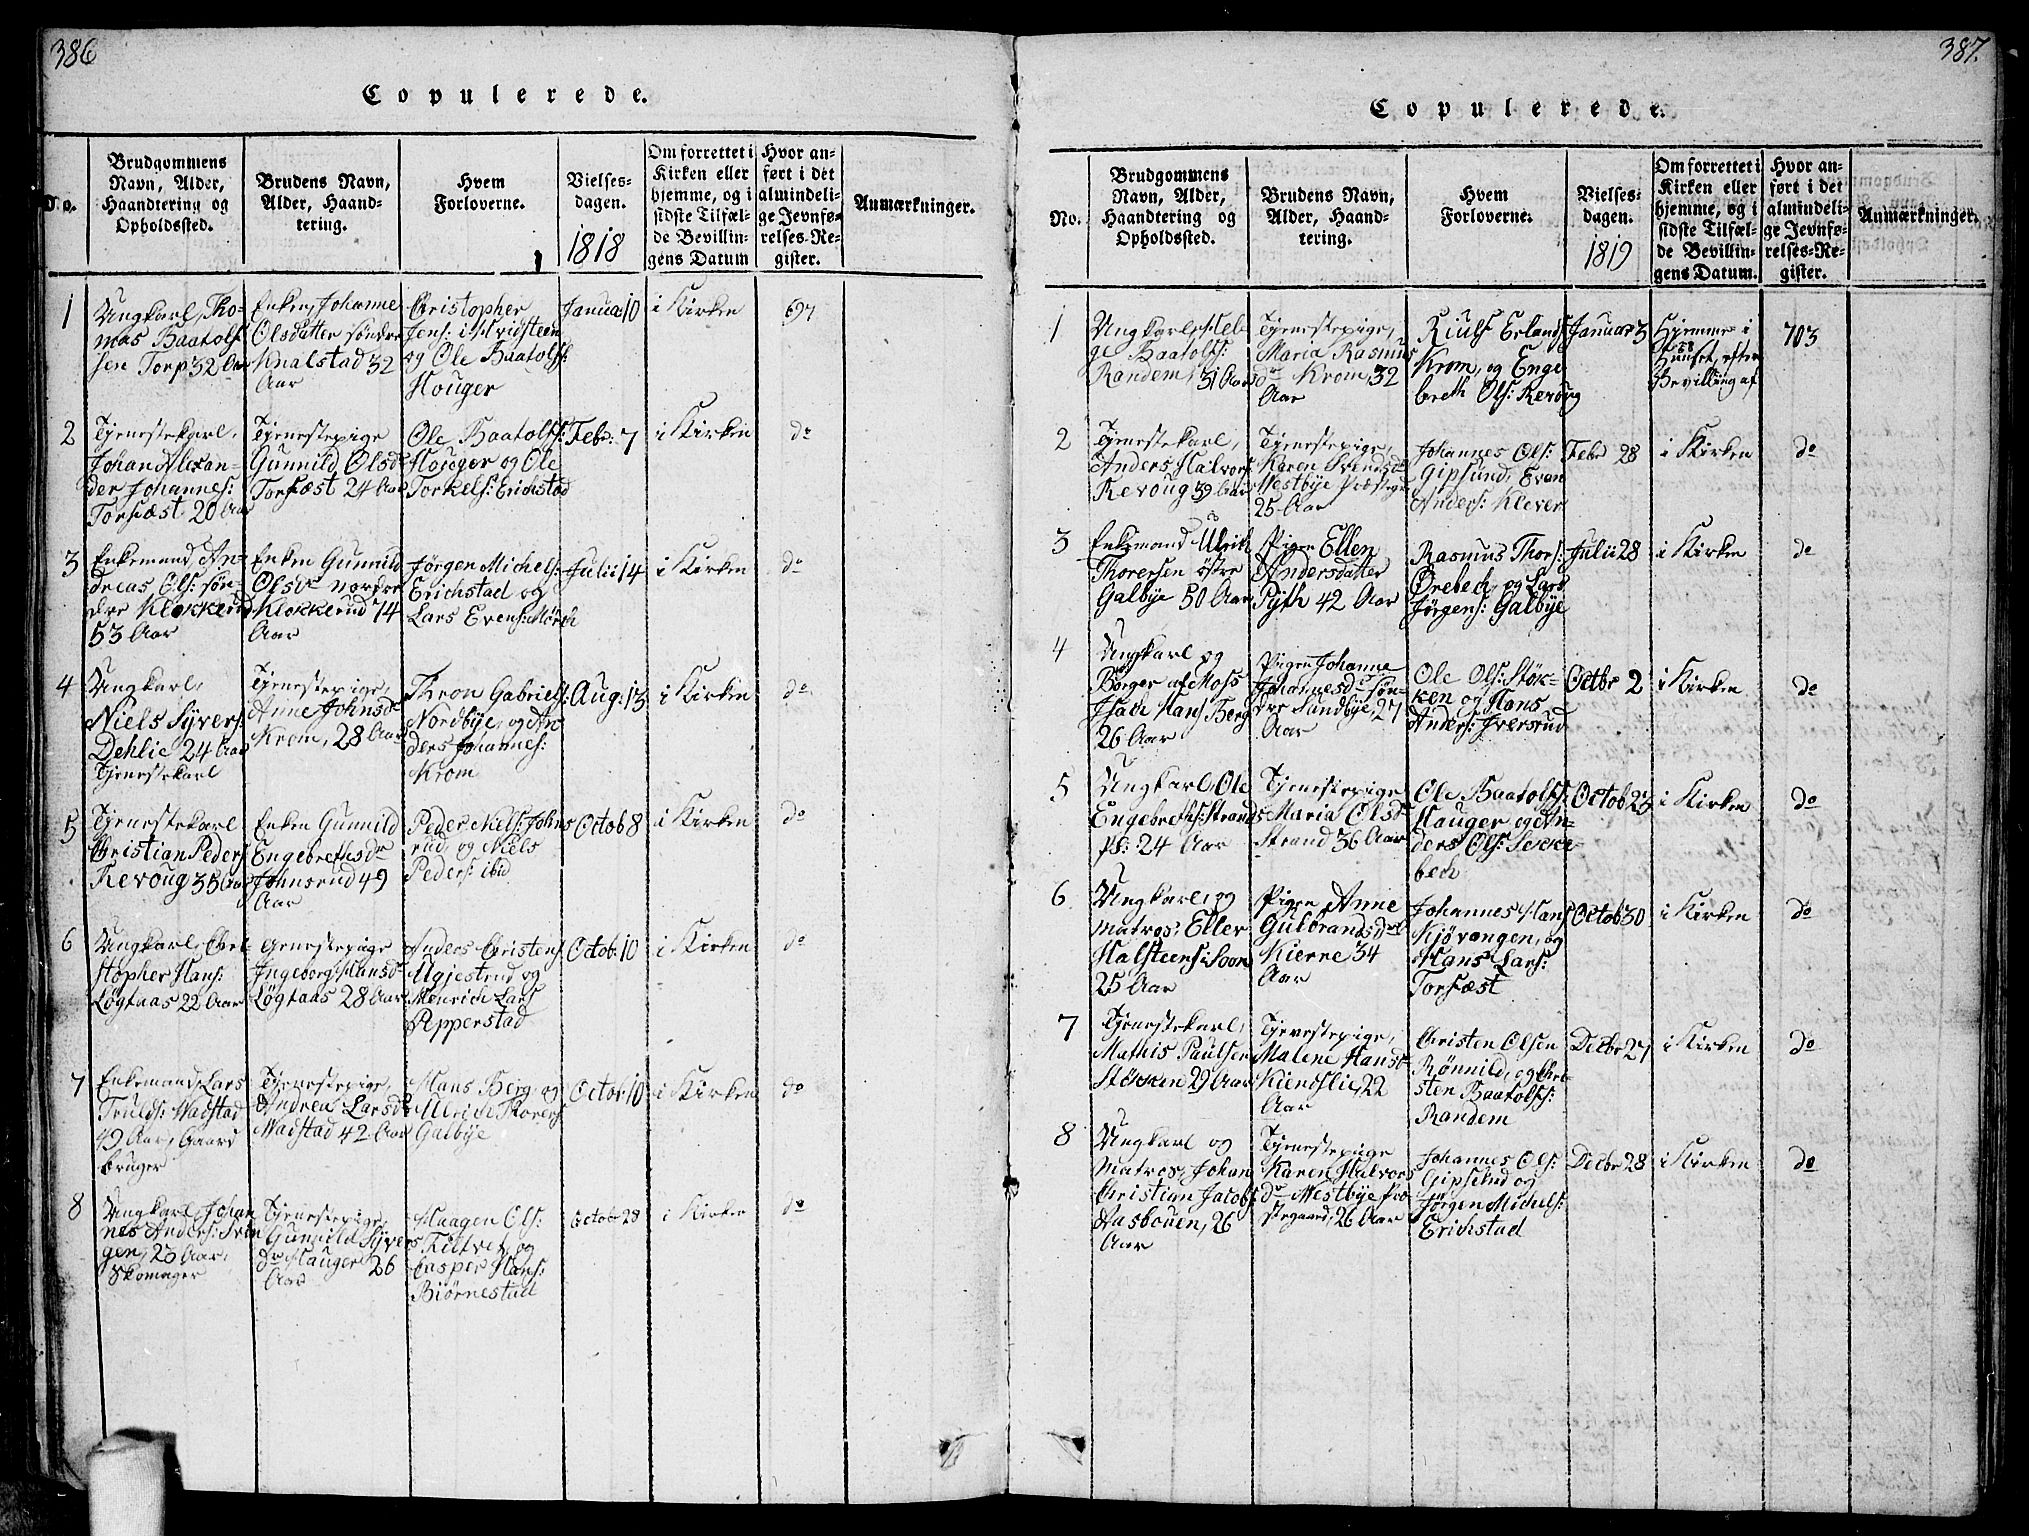 386
Copulerede.
No.
Brudgommens
Navn, Alder,
Haandtering og
Opholdssted.
Brudens Navn,
Alder, Haand-
tering.
Hvem
Forloverne.
Vielses-
dagen.
1818
Om forrettet i
Kirken eller
hjemme, og i
sidste Tilfæl-
de Bevillin-
gens Datum
Hvor an-
ført i det
almindeli-
ge Jevnfø-
relses-Re-
gister.
Anmærkninger.
1
Ungkarl, Tho-
mas Baatolf
sen Torp 32 Aar
Enken, Johanne
Olsdatter søndre
Knalstad 32
Aar
Christopher
Jens: Hvidsteen
og Ole Baatolfs:
Houger
Januar 10
i Kirken
697
2
Tjenestekarl,
Johan Alexan-
der Johannes:
Torfæst 20 Aar
Tjenestepige
Gunnild Olsdr
Torfæst 24 Aar
Ole Baatolfs:
Houger og Ole
Torkels: Erichstad
Febr: 7
i Kirken
do
3
Enkemand, An-
dreas Ols: søn-
dre Klokkerud
53 Aar
Enken Gunnild
Olsdr nordre
Klokkerud 74
Aar
Jørgen Michels:
Erichstad og
Lars Evens: Mørch
Julii 14
i Kirken
do
4
Ungkarl,
Niels Syvers:
Dehlie 24 Aar
Tjenestekarl
Tjenestepige,
Anne Johnsdr
Krom, 28 Aar
Thron Gabriels:
Nordbye, og An
ders Johannes:
Krom
Aug: 13
i Kirken
do
5
Tjenestekarl
Christian Peders
Revoug 35 Aar
Enken Gunnild
Engebrethsdr
Johnsrud 49
Aar
Peder Niels: Johns
rud, og Niels
Peders: ibid
Octob 8
i Kirken
do
6
Ungkarl, Chri
stopher Hans:
Løgtaas 22 Aar
Tjenestepige
Ingeborg Hansdr
Løgtaas 28 Aar
Anders Christens:
Ugjestrud og
Henrich Lars
Pepperstad
Octob: 10
i Kirken
do
7
Enkemand, Lars
Truls: Wadstad
49 Aar, Gaard
bruger
Tjenestepige,
Andrea Larsdr
Wadstad 42 Aar
Hans Berg og
Ulrich Thorers:
Galbye
Octob: 10
i Kirken
do
8
Ungkarl, Johan
nes Anders: Svin
gen, 25 Aar,
Skomager
Tjenestepige,
Gunnild Syvers
dr Hauger 26
Aar
Haagen Ols:
Kiltvet, og
Casper Hans:
Biørnestad
Octobr 28
i Kirken
do
387.
Copulerede.
No.
Brudgommens
Navn, Alder,
Haandtering og
Opholdssted.
Brudens Navn,
Alder, Haand-
tering.
Hvem
Forloverne.
Vielses-
dagen.
1819
Om forrettet i
Kirken eller
hjemme, og i
sidste Tilfæl-
de Bevillin-
gens Datum.
Hvor an-
ført i det
almindeli-
ge Jevnfø-
relses-Re-
gister.
Anmærkninger.
1
Ungkarl, Hel
ge Baatolfs:
Randem, 31 Aar
Tjenestepige,
Maria Rasmus
dr Krom, 32
Aar
Riulf Erlands
Krom, og Enge
breth Ols: Revoug
Januar 3
Hjemme i
Huuset, efter
Bevilling af
703
2
Tjenestekarl,
Anders Halvors:
Revoug 39 Aar
Tjenestepige,
Karen Svendsdr
Westbye Præstegrd
25 Aar
Johannes Ols:
Gipsund, Even
Anders: Klever
Febr 28
i Kirken
do
3
Enkemand Ulrik
Thorersen østre
Galbye 50 Aar
Pigen Ellen
Andersdatter
Pyth 42 Aar
Rasmus Thors:
Ørebech, og Lars
Jørgens: Galbye
Julii 28
i Kirken
do
4
Ungkarl og
Borger af Moss
Isach Hans Berg
26 Aar
Pigen Johanne
Johannesdr søn-
dre Sundbye, 27
Aar
Ole Ols: Støk-
ken og Hans
Anders: Iversrud
Octbr 2
i Kirken
do
5
Ungkarl, Ole
Engebreths: Strands
Pl: 24 Aar
Tjenestepige
Maria Olsdr
Strand 36 Aar
Ole Baatolfs:
Hauger og An-
ders Ols: Sekke
bech
Octob 23
i Kirken
do
6
Ungkarl, og
Matros, Eller
Halsteens: Soon
25 Aar
Pigen Anne
Gulbrandsdr
Kierre 34
Aar
Johannes Hans
Kjøvangen, og
Hans Lars:
Torfæst
Octob 30
i Kirken
do
7
Tjenestekarl,
Mathis Paulsen
Støkken 29 Aar
Tjenestepige,
Malene Hansdr
Kiendslie, 22
Aar
Christen Olsen
Rønnild, og Chri-
sten Baatolfs:
Randem
Decbr 27
i Kirken
do
8
Ungkarl og
Matros, Johan
Christian Jacobs:
Aasbouen, 26
Aar
Tjenestepige
Karen Halvors
dr Westbye Præ
stegaard, 26 Aar
Johannes Ols:
Gipselud og
Jørgen Michels:
Erichstad
Decbr 28
i Kirken
do